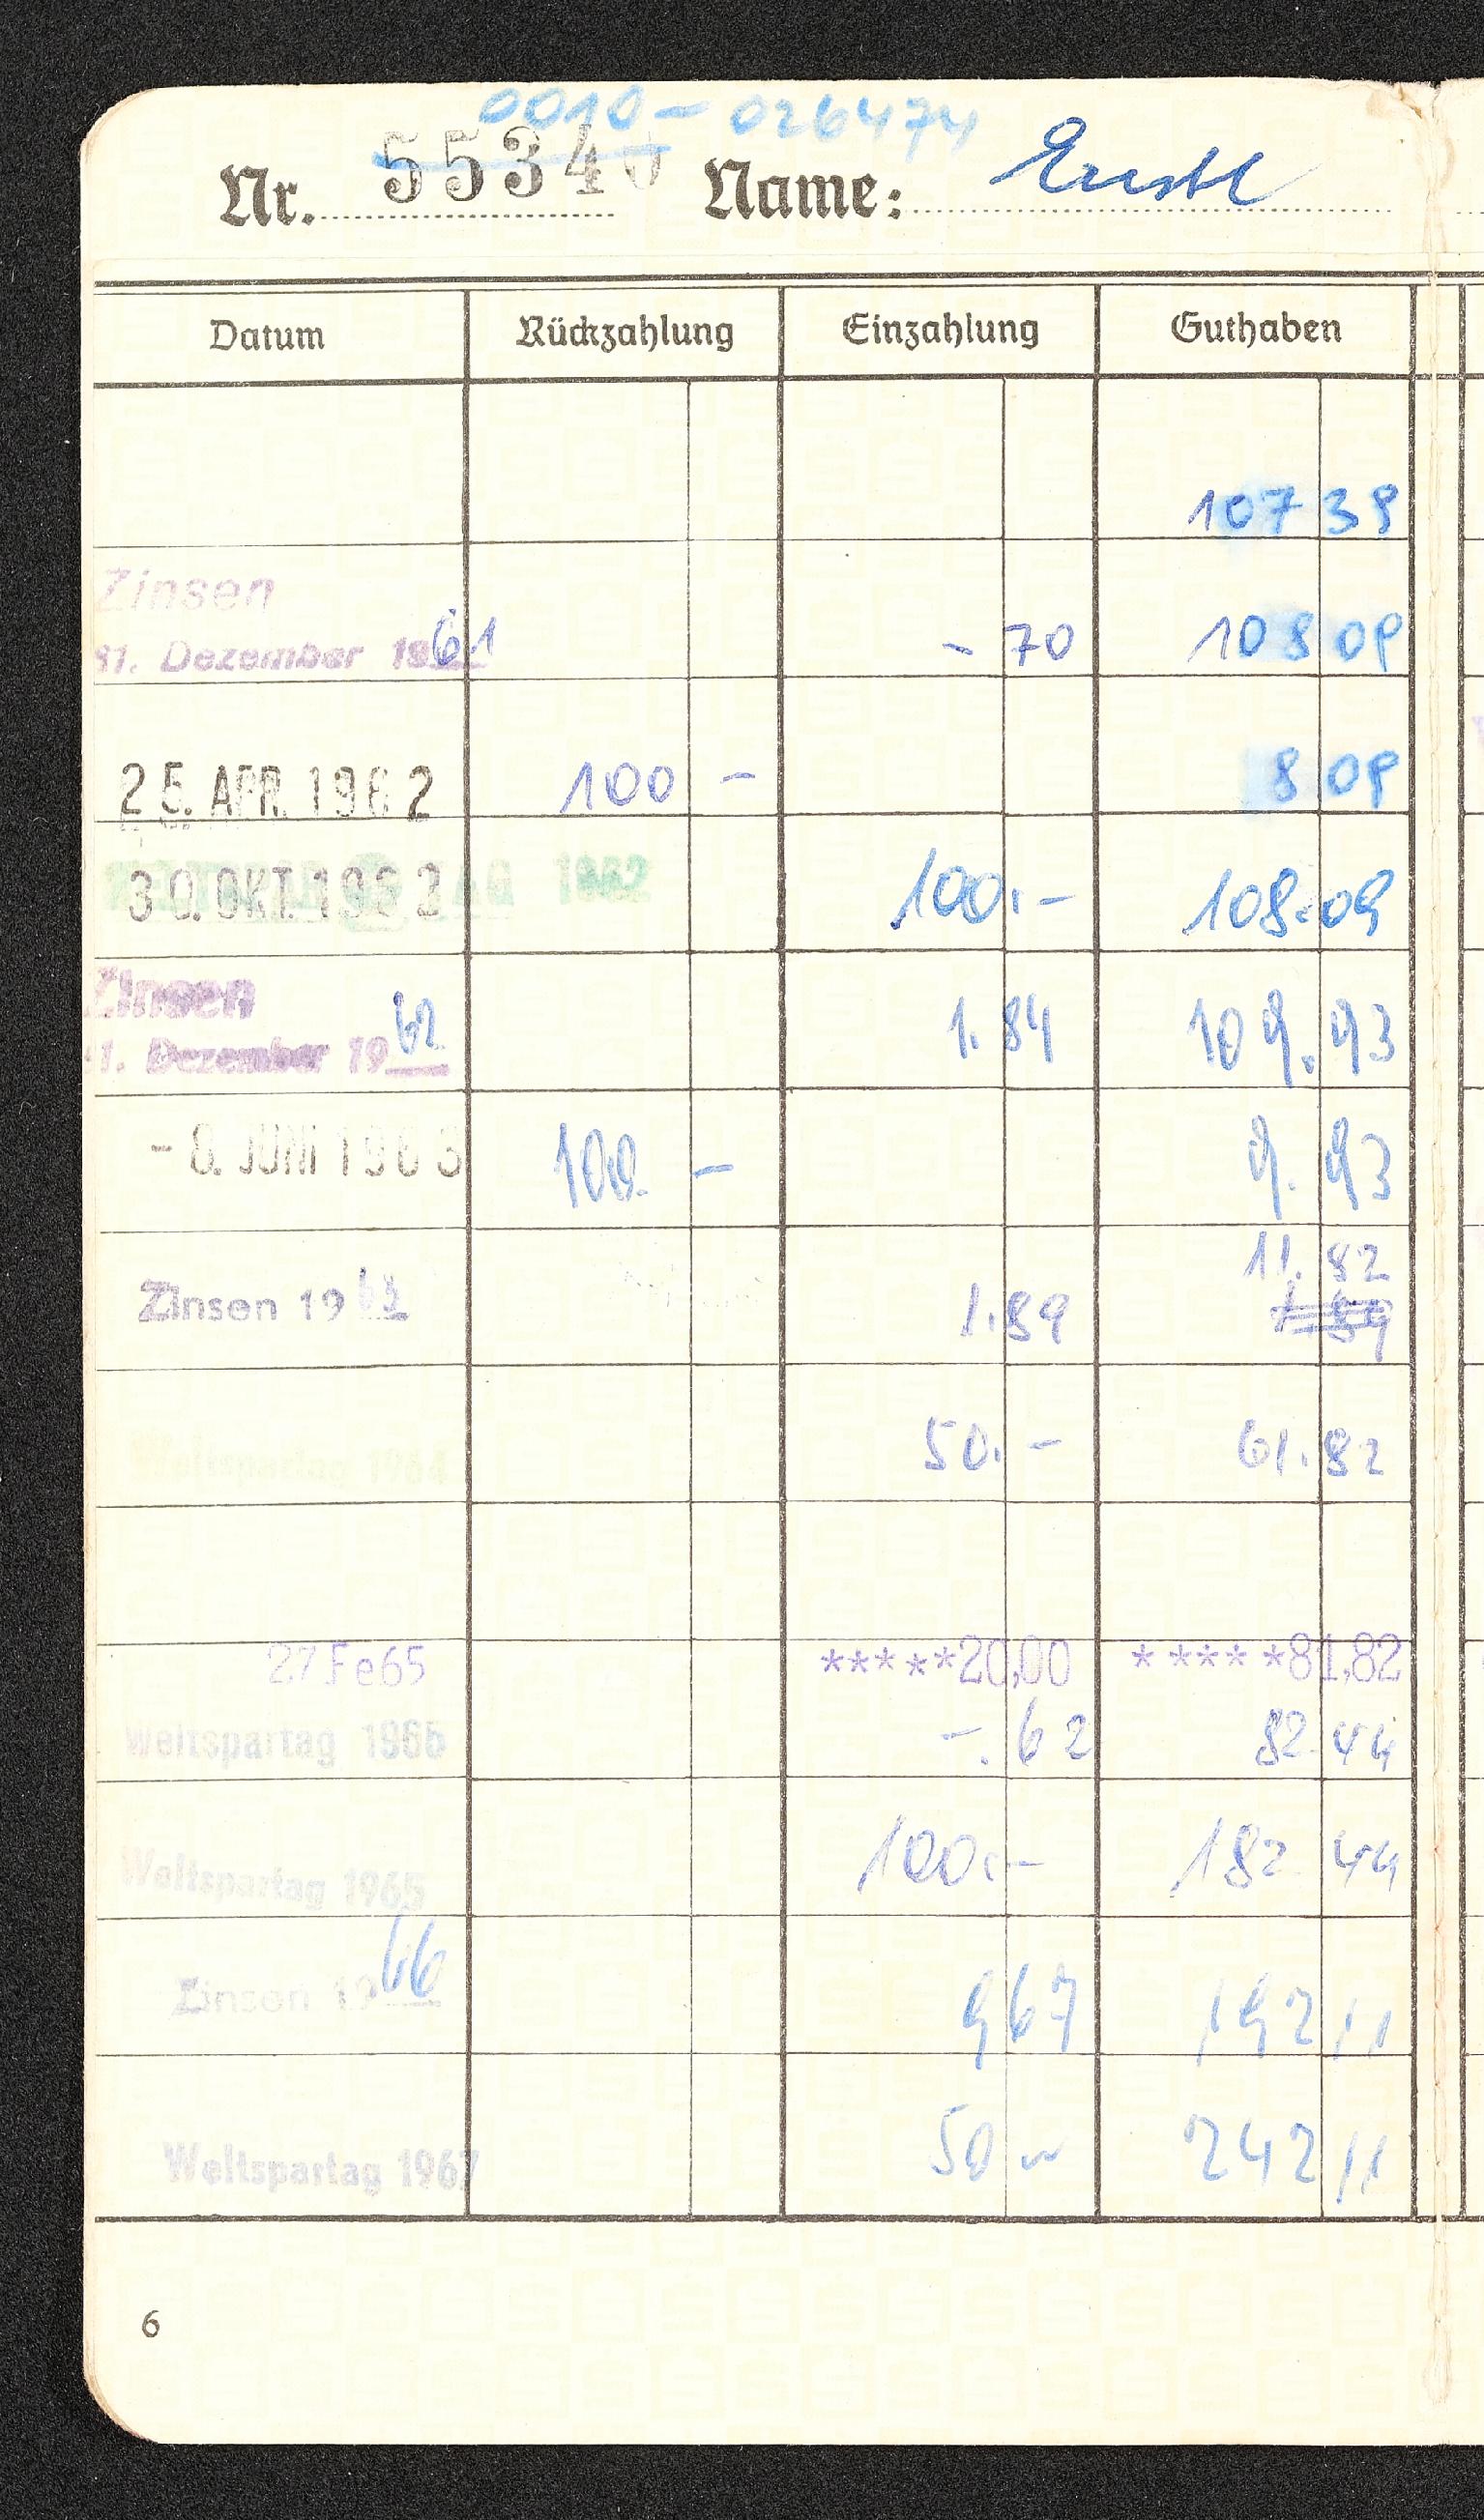 0010 - 026474
Nr. 55340 Name: Ernstl
Datum Rückzahlung Einzahlung Guthaben
107 39
Zinsen
31. Dezember 1961 - 70 108 09
25. APR. 1962 100 - 8 09
30. OKT. 1962 WELTSPARTAG 1962 100.- 108.09
Zinsen
31. Dezember 1962 1.84 109.93
- 8. JUNI 1963 100. - 9.93
11.82
Zinsen 19 1.89 1.89
Weltspartag 1964 50.- 61.82
27Fe65 *****20,00 *****81,82
Weltspartag 1965 -.62 82 44
Weltspartag 1965 100.- 182 44
Zinsen 1966 9 67 192 11
Weltspartag 1967 50 - 242 11
6